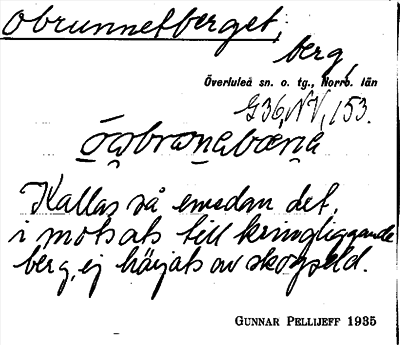 Obrunnetberget,
berg,
Överluleå sn. o. tg., Norrb. län
G36, NV, 153.
Kallas så emedan det,
i motsats till kringliggande
berg, ej härjats av skogseld.
GUNNAR PELLIJEFF 1935